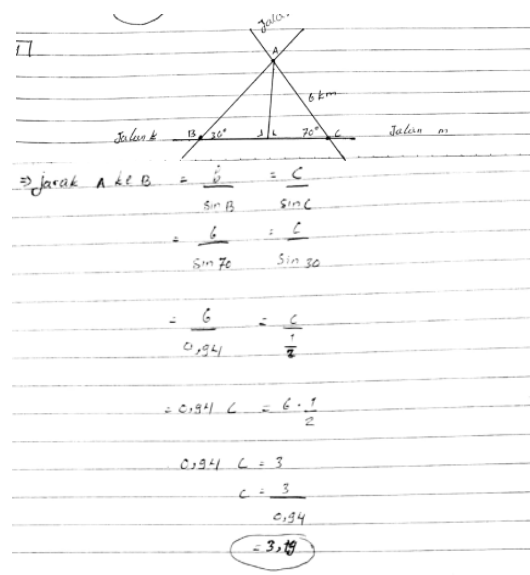 1
Jala
A
6 km
Jalan k B 30° 70° C Jalan m
⇒ Jarak A ke B = b/sin B = c/sin C
= 6/sin 70 = c/sin 30
= 6/0,94 = c/(1/2)
= 0,94 c = 6 · 1/2
0,94 c = 3
c = 3/0,94
= 3,19